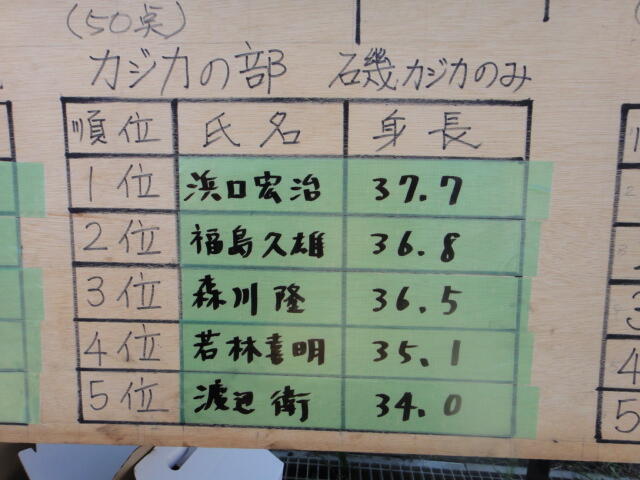 (50点)
カジカの部 磯カジカのみ
順位 氏名 身長
1位 浜口宏治 37.7
2位 福島久雄 36.8
3位 森川隆 36.5
4位 若林喜明 35.1
5位 渡辺衛 34.0
3
4
5